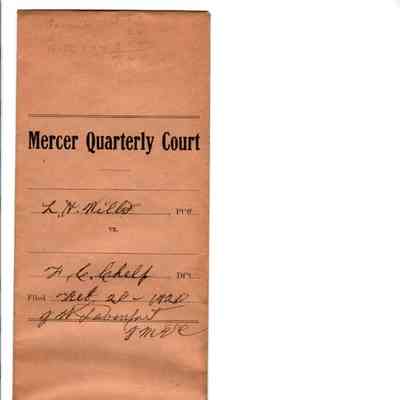 Mercer Quarterly Court
L. H. Wills, Pltf.
vs.
F. C. Chelf, Dft.
Filed Feb. 20 - 1920
J W Davenport